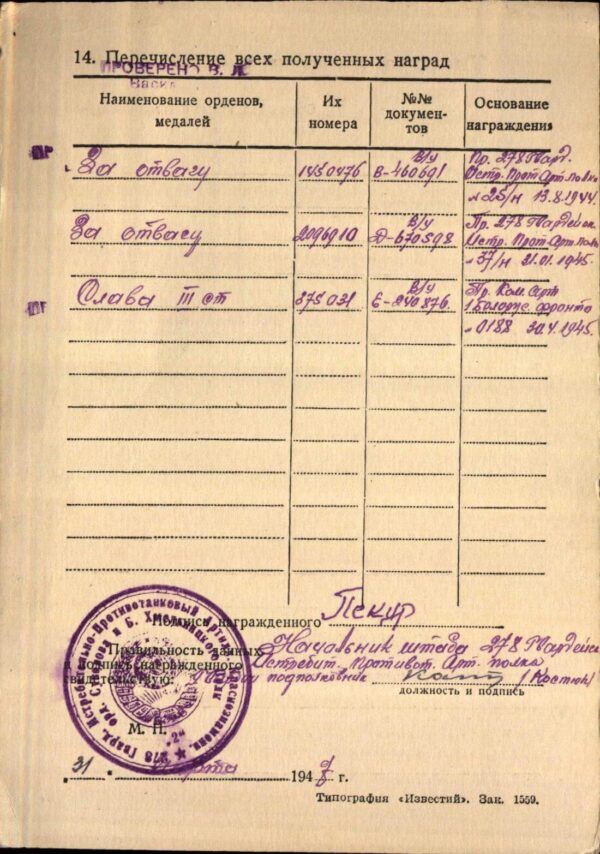 14. Перечисление всех полученных наград
ПРОВЕРЕНО
Наименование орденов, медалей
Их номера
№№ документов
Основание награждения
За отвагу
1450476
В/у В-460691
Пр. 278 Гвард.
Истр. Прот. Арт. полка
25/н 13.8.1944.
За отвагу
2096910
В/у Д-670598
Пр. 278 Гвардейск.
Истр. Прот. Арт. полка
37/н 21.01.1945.
Слава III ст
375031
В/у Е-240876
Пр. Ком. Арт
1 Белорус. фронта
0188 30.4.1945.
Подпись награжденного Пекур
Правильность данных и подпись награжденного свидетельствую:
Начальник штаба 278 Гвардейск
Истребит. Противот. Арт. полка
Гвардии подполковник (Костюк)
должность и подпись
М. П.
31 марта 194 г.
Типография «Известий». Зак. 1559.